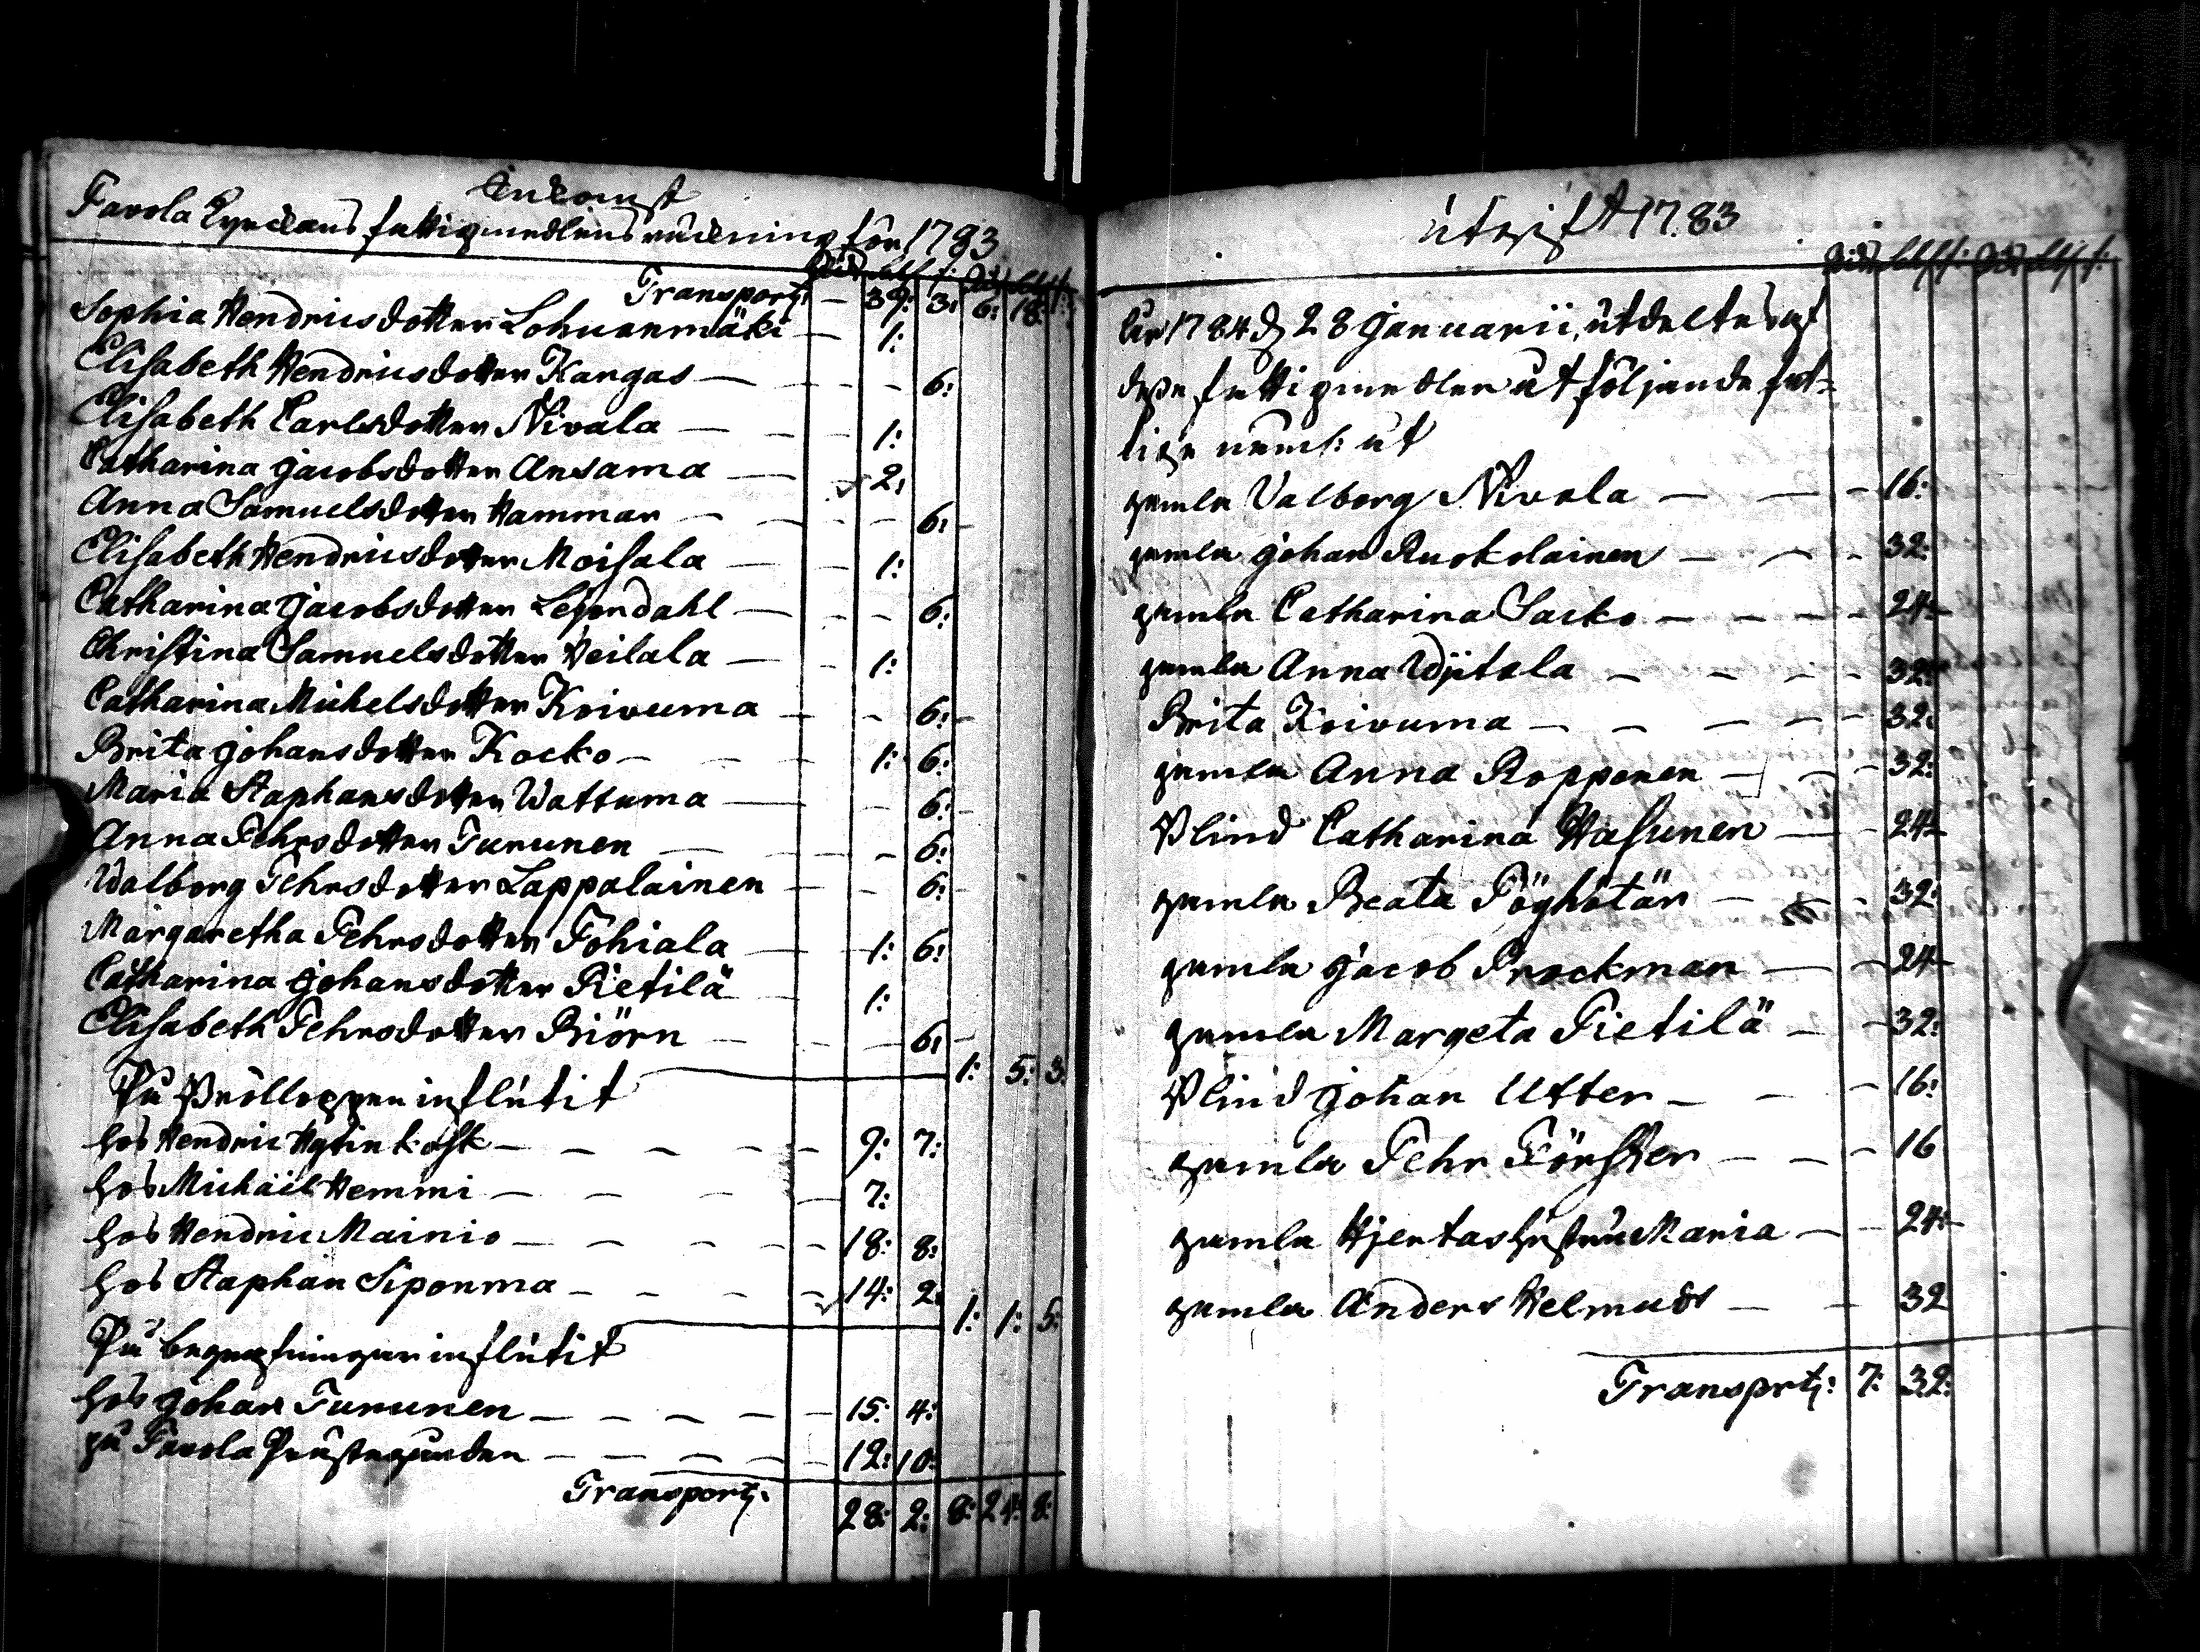 Inkomst
Pavola Kyrckans fattigmedlens räckning för 1783
Rd: sk: r: Rd sk: r:
Transport: — 39: 3: 6: 18: 1:
Sophia Hendricsdotter Lohuanmäki — 1:
Elisabeth Hendricsdotter Kangas — — — 6:
Elisabeth Carlsdotter Nivala — — 1:
Catharina Jacobsdotter Ansama — 2:
Anna Samuelsdotter Hammar — — — 6: —
Elisabeth Hendricsdotter Moisala — — 1:
Catharina Jacobsdotter Lejondahl — — — 6:
Christina Samuelsdotter Heilala — — 1:
Catharina Michelsdotter Koivuma — — 6: —
Brita Johansdotter Kocko — — — 1: 6:
Maria Staphansdotter Wattuma — — 6: —
Anna Pehrsdotter Turunen — — — 6:
Walborg Pehrsdotter Lappalainen — — 6: —
Margaretha Pehrsdotter Pohiala — — 1: 6:
Catharina Johansdotter Pietilä — 1:
Elisabeth Pehrsdotter Biörn — — — 6: —
1: 5: 3:
På Bröllopper influtit
hos Hendric Hytinkosk — — — — — 9: 7:
hos Michäil Hemmi — — — — 7:
hos Hendric Mainio — — — — — 18: 8:
hos Staphan Siponma — — — — 14: 2:
1: 1: 5:
På begrafningar influtit
hos Johan Turunen — — — — — — 15: 4:
på Pavola Prästegården — — — — — 12: 10:
Transport: 28: 2: 8: 24: 8:
Utgift 1783
Rd sk r: Rd sk r:
År 1784 d. 28 Januarii, utdeltes af
desse fattigmedlen åt följande fat-
tige neml: åt
gamla Valborg Nivala — — — 16:
gamla Johan Ruokolainen — — — 32:
gamla Catharina Sacko — — — — 24 —
gamla Anna Ujjtala — — — — 32:
Brita Koivuma — — — — — 32:
gamla Anna Ropponen — — — 32:
Blind Catharina Hasunen — — 24 —
gamla Beata Pöyhötär — — 32:
gamla Jacob Brockman — — 24 —
gamla Margeta Pietilä — — 32:
Blind Johan Utter — — — 16:
gamla Pehr Förster — — — 16
gamla Hjertas hustru Maria — — 24: —
gamla Anders Helmuds — — 32
Transprt: 7: 32: